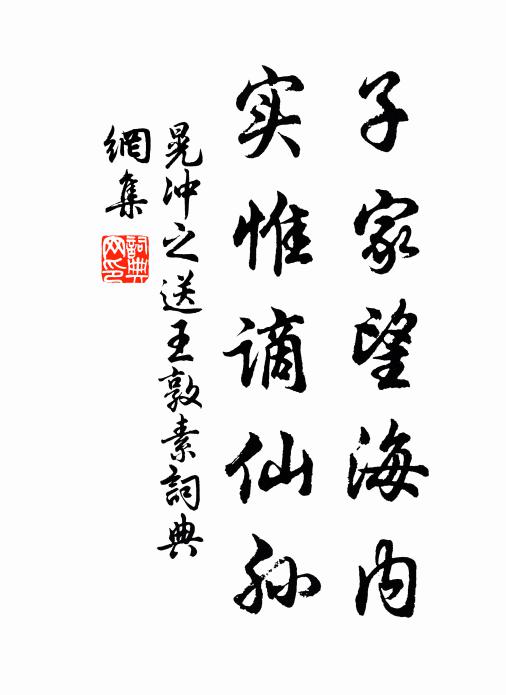 子家望海内
实惟谪仙孙
晁冲之送王敦素詞典
網集
詞典
网印